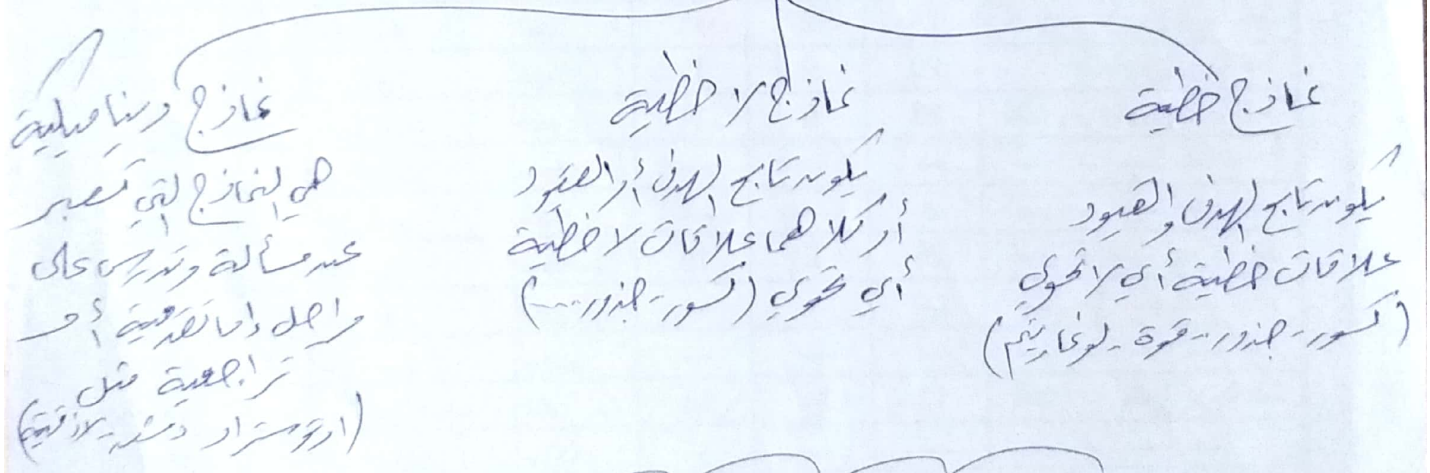 نماذج خطية
يكون تابع الهدف والقيود
علاقات خطية أي لا تحوي
(كسور - جذور - قوة - لوغاريتم)
نماذج لا خطية
يكون تابع الهدف أو القيود
أو كلاهما علاقات لا خطية
أي تحوي (كسور - جذور ....)
نماذج ديناميكية
هي النماذج التي تعبر
عن مسألة وتدرس على
مراحل إما تقدمية أو
تراجعية مثل
(اوتوستراد دمشق - لاذقية)